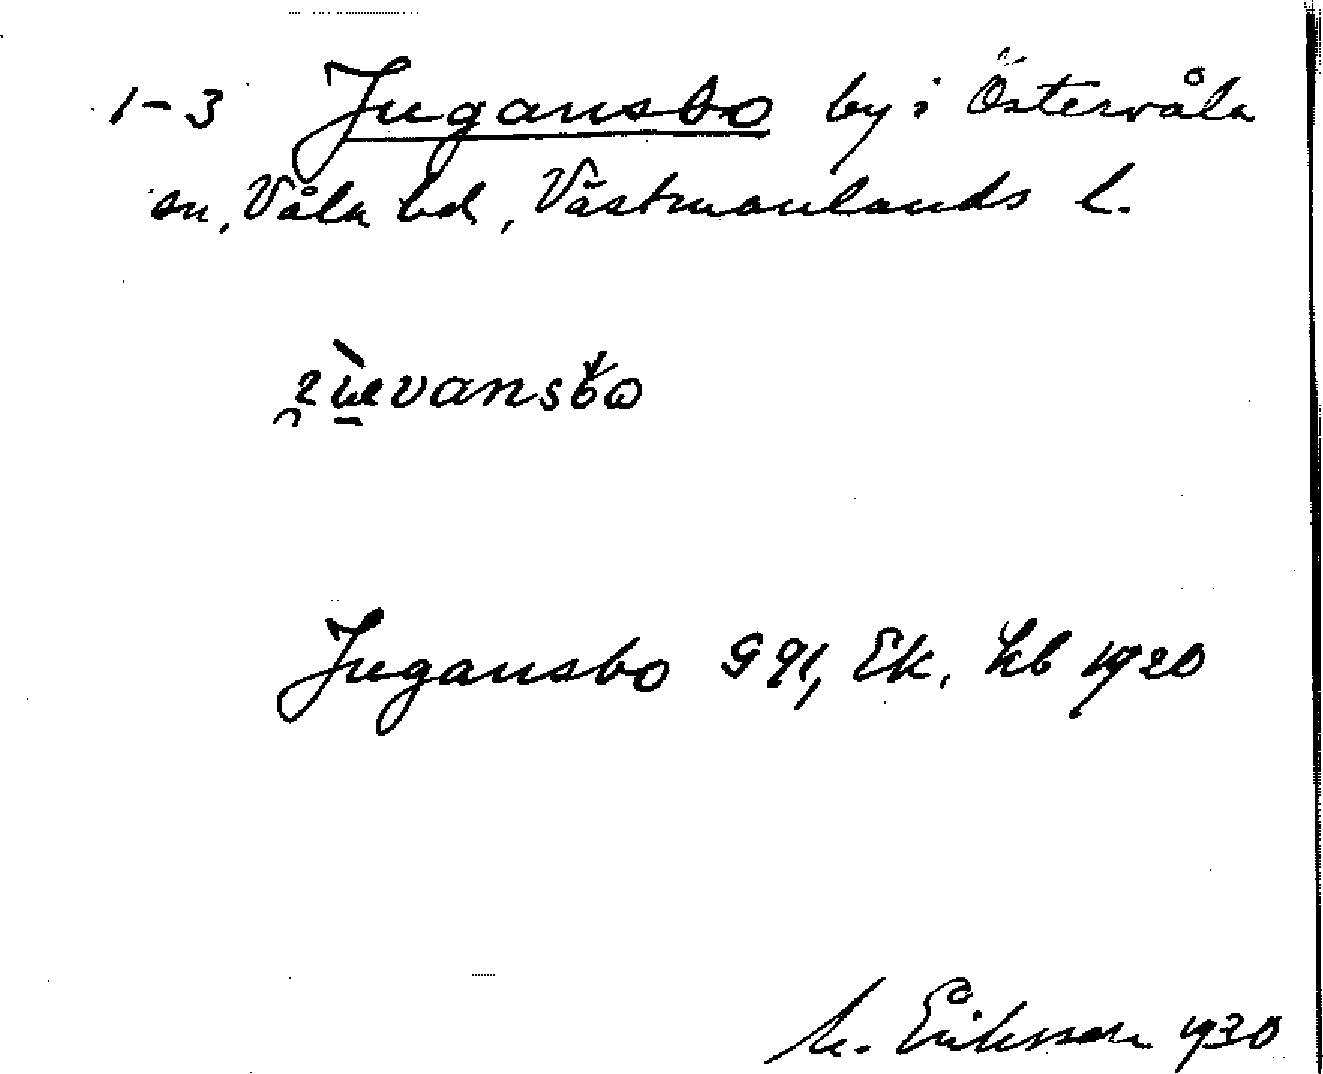 1-3 Jugansbo by i Östervåla
sn, Våla hd, Västmanlands l.
Jugansbo G 91, Ek, Hb 1920
M. Eriksson 1930